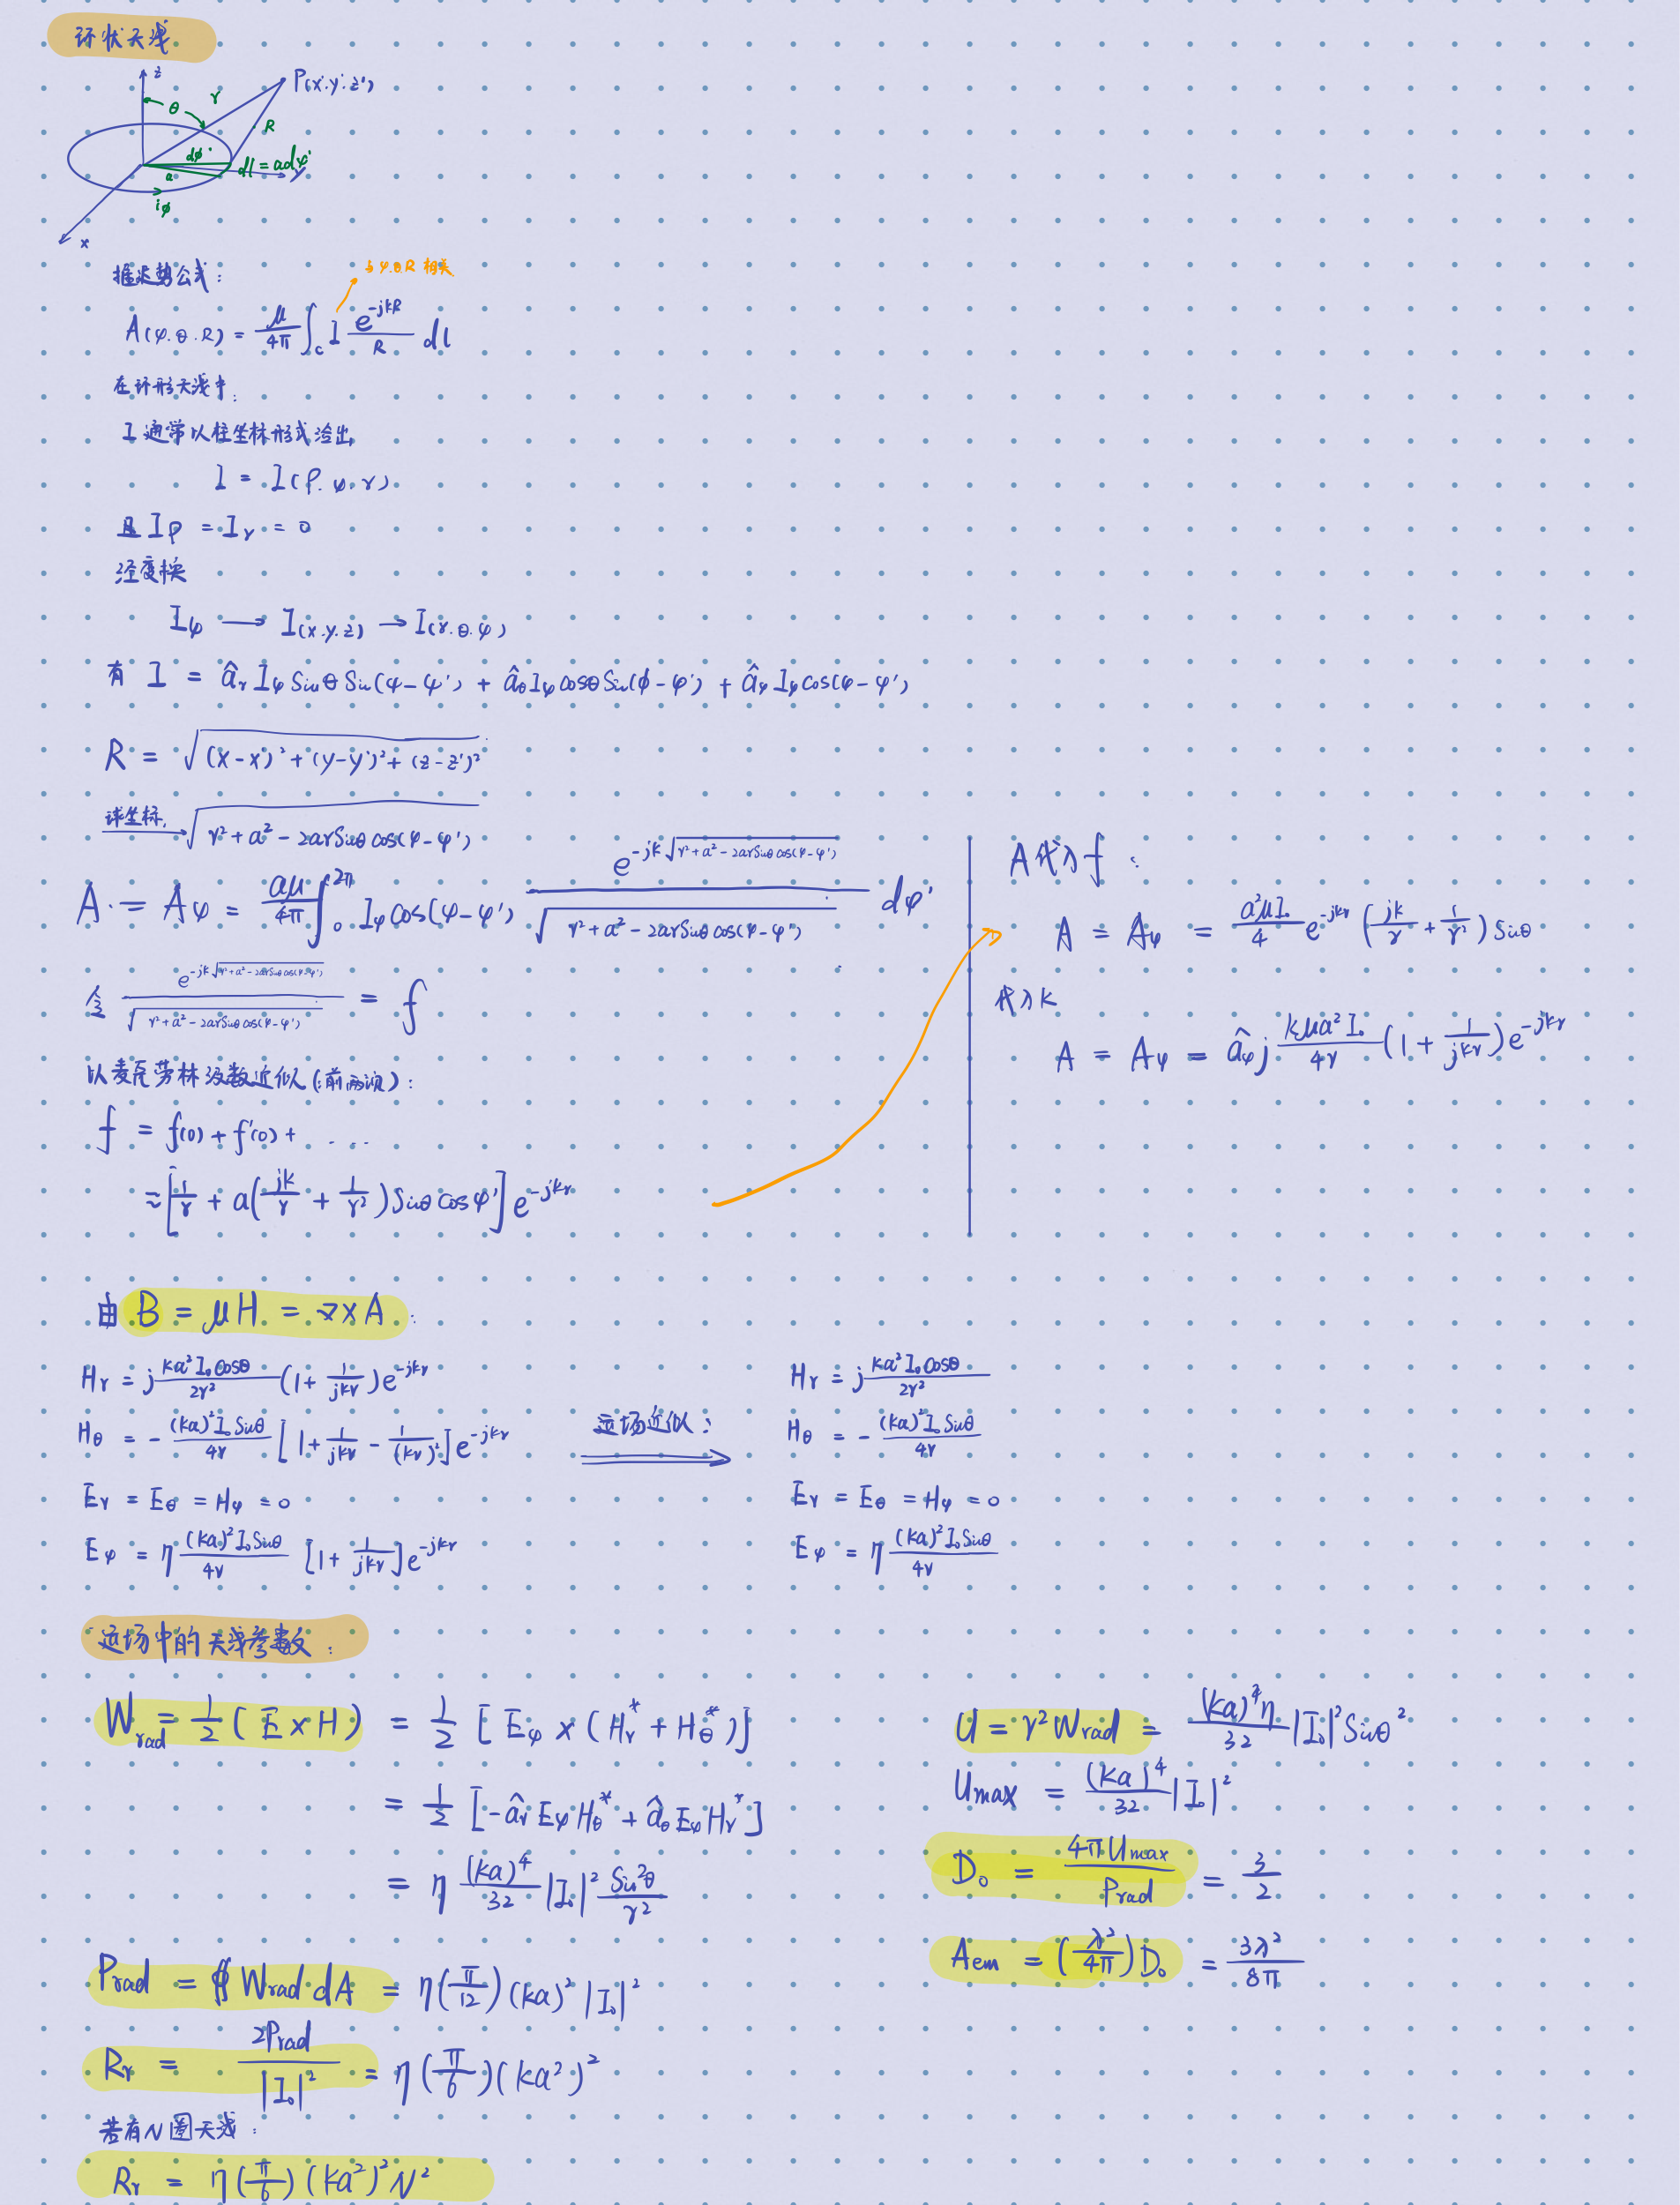 环状天线
z
θ
r
P(x'.y'.z')
R
dφ'
dl = adφ'
a
y
i_φ
x
推迟势公式：
与 φ.θ.R 相关
A(φ.θ.R) = μ/4π ∫_c I e^{-jkR}/R dl
在环形天线中：
I 通常以柱坐标形式给出
I = I(ρ.φ.r)
且 I_ρ = I_r = 0
经变换
I_φ → I(x.y.z) → I(r.θ.φ)
有 I = â_r I_φ Sinθ Sin(φ-φ') + â_θ I_φ cosθ Sin(ϕ-φ') + â_φ I_φ cos(φ-φ')
R = √((x-x')² + (y-y')² + (z-z')²)
球坐标 → √(r² + a² - 2ar Sinθ cos(φ-φ'))
A = A_φ = aμ/4π ∫_0^{2π} I_φ cos(φ-φ') e^{-jk√(r²+a²-2arSinθcos(φ-φ'))} / √(r²+a²-2arSinθcos(φ-φ')) dφ'
令 e^{-jk√(r²+a²-2arSinθcos(φ-φ'))} / √(r²+a²-2arSinθcos(φ-φ')) = f
以麦克劳林级数近似(前两项)：
f = f(0) + f'(0) + ....
≈ [1/r + a(jk/r + 1/r²) Sinθ cosφ'] e^{-jkr}
A代入f：
A = A_φ = a²μI₀/4 e^{-jkr} (jk/r + 1/r²) Sinθ
代入K
A = A_φ = â_φ j kμa²I₀/4r (1 + 1/jkr) e^{-jkr}
由 B = μH = ∇×A
H_r = j ka²I₀cosθ/2r² (1 + 1/jkr) e^{-jkr}
H_θ = - (ka)²I₀Sinθ/4r [1 + 1/jkr - 1/(kr)²] e^{-jkr}
E_r = E_θ = H_φ = 0
E_φ = η (ka)²I₀Sinθ/4r [1 + 1/jkr] e^{-jkr}
远场近似：
H_r = j ka²I₀cosθ/2r²
H_θ = - (ka)²I₀Sinθ/4r
E_r = E_θ = H_φ = 0
E_φ = η (ka)²I₀Sinθ/4r
远场中的天线参数：
W_rad = 1/2 (E×H) = 1/2 [E_φ × (H_r* + H_θ*)]
= 1/2 [-â_r E_φ H_θ* + â_θ E_φ H_r*]
= η (ka)⁴/32 |I₀|² Sin²θ/r²
P_rad = ∯ W_rad dA = η(π/12)(ka)²|I₀|²
R_r = 2P_rad/|I₀|² = η(π/6)(ka²)²
若有N圈天线：
R_r = η(π/6)(ka²)²N²
U = r²W_rad = (ka)⁴η/32 |I₀|² Sinθ²
U_max = (ka)⁴/32 |I₀|²
D₀ = 4πU_max/P_rad = 3/2
A_em = (λ²/4π)D₀ = 3λ²/8π